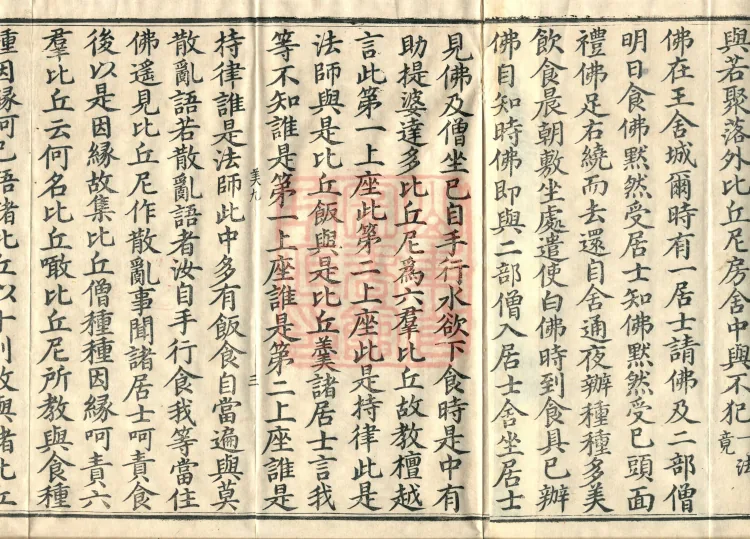 與若聚落外比丘尼房舍中與不犯一法竟
佛在王舍城爾時有一居士請佛及二部僧
明日食佛默然受居士知佛默然受已頭面
禮佛足右繞而去還自舍通夜辦種種多美
飲食晨朝敷坐處遣使白佛時到食具已辦
佛自知時佛即與二部僧入居士舍坐居士
見佛及僧坐已自手行水欲下食時是中有
助提婆達多比丘尼爲六羣比丘故教檀越
言此第一上座此第二上座此是持律此是
法師與是比丘飯與是比丘羹諸居士言我
等不知誰是第一上座誰是第二上座誰是
美九 三
持律誰是法師此中多有飯食自當遍與莫
散亂語若散亂語者汝自手行食我等當住
佛遥見比丘尼作散亂事聞諸居士呵責食
後以是因緣故集比丘僧種種因緣呵責六
羣比丘云何名比丘噉比丘尼所教與食種
種因緣呵已語諸比丘以十利故與諸比丘